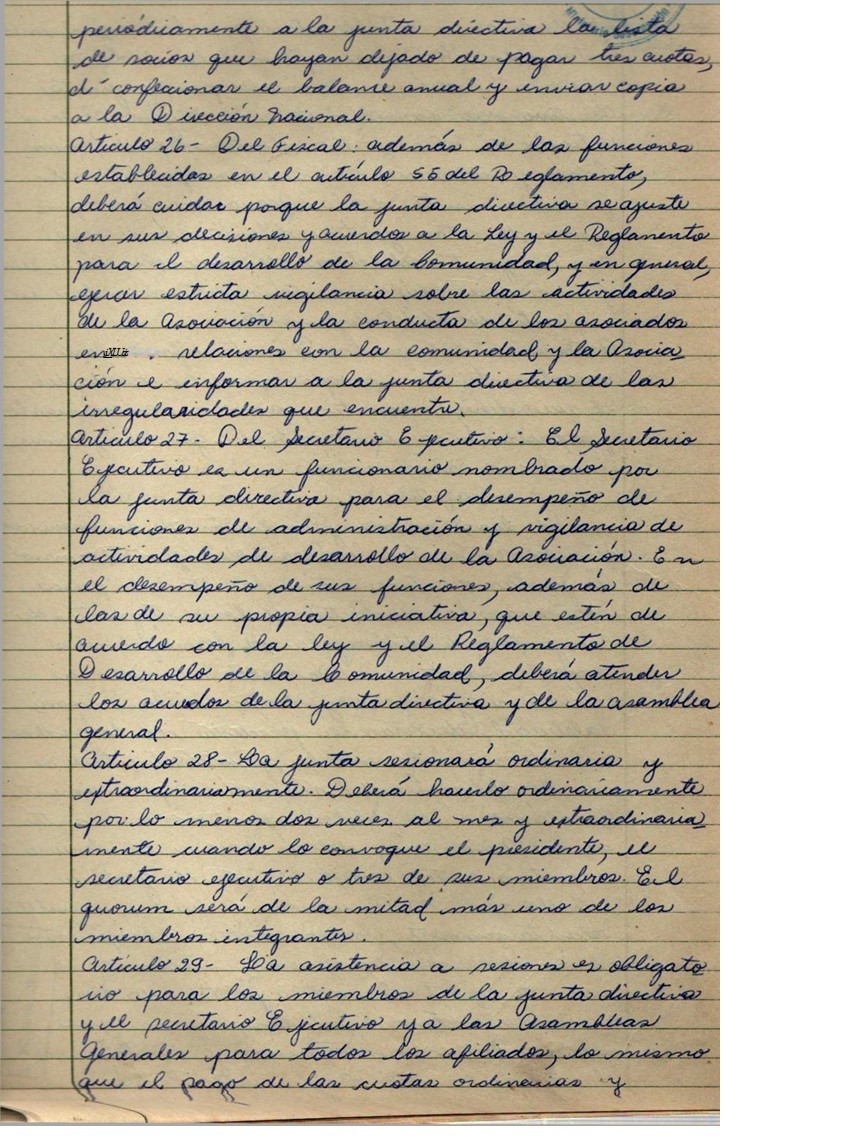 periódicamente a la junta directiva la lista
de socios que hayan dejado de pagar tres cuotas,
d- confecionar el balance anual y enviar copia
a la Dirección Nacional.
Artículo 26- Del Fiscal: además de las funciones
establecidas en el artículo 55 del Reglamento,
deberá cuidar porque la junta directiva se ajuste
en sus decisiones y acuerdos a la Ley y el Reglamento
para el desarrollo de la Comunidad, y en general,
ejercer estricta vigilancia sobre las actividades
de la Asociación y la conducta de los asociados
en relaciones con la comunidad y la Asocia_
ción e informar a la junta directiva de las
irregularidades que encuentre.
Artículo 27- Del Secretario Ejecutivo: El Secretario
Ejecutivo es un funcionario nombrado por
la junta directiva para el desempeño de
funciones de administración y vigilancia de
actividades de desarrollo de la Asociación. En
el desempeño de sus funciones, además de
las de su propia iniciativa, que estén de
acuerdo con la ley y el Reglamento de
Desarrollo de la Comunidad, deberá atender
los acuedos de la junta directiva y de la asamblea
general.
Artículo 28- La junta sesionará ordinaria y
extraordinariamente. Deberá hacerlo ordinariamente
por lo menos dos veces al mes y extraordinaria_
mente cuando lo convoque el presidente, el
secretario ejecutivo o tres de sus miembros. El
quorum será de la mitad más uno de los
miembros integrantes.
Artículo 29- La asistencia a sesiones es obligato_
rio para los miembros de la junta directiva
y el secretario Ejecutivo y a las Asambleas
Generales para todos los afiliados, lo mismo
que el pago de las cuotas ordinarias y